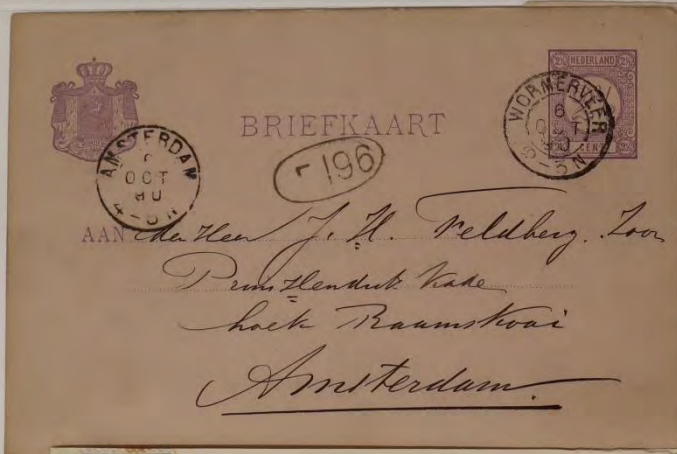 NEDERLAND
2½ 2½
CENT
WORMERVEER
6
OCT
90
AMSTERDAM
6
OCT
90
4-5N
BRIEFKAART
196
AAN den Heer J. H. Feldberg. Zoon
Prins Hendrik Kade
hoek Raamskooi
Amsterdam.